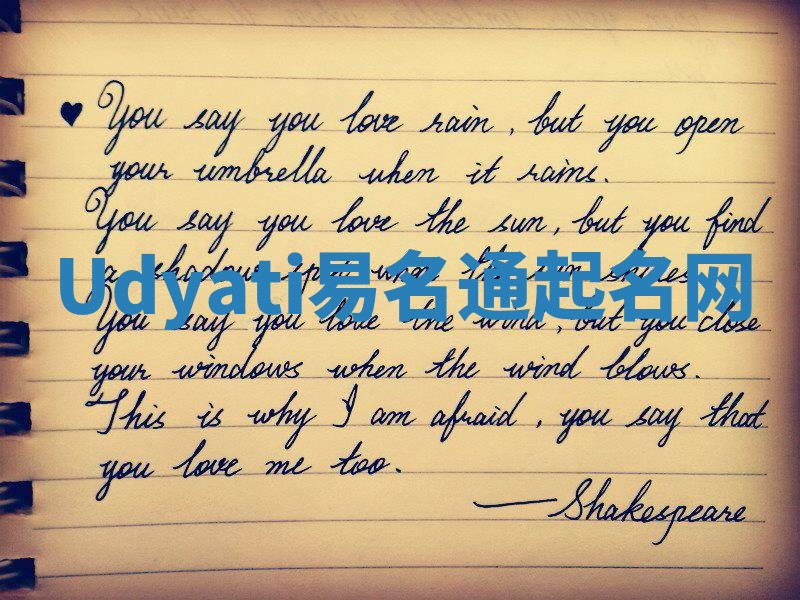 ♥ You say you love rain, but you open
your umbrella when it rains.
You say you love the sun, but you find
a shadow spot when the sun shines.
Udyati易名通起名网
You say you love the wind, but you close
your windows when the wind blows.
This is why I am afraid, you say that
you love me too.
— Shakespeare